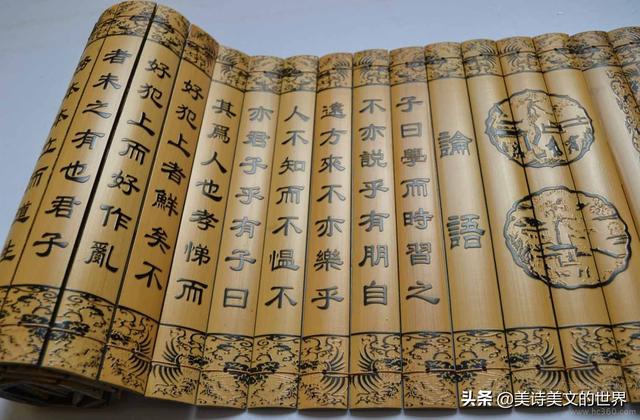 論語
子曰學而時習之
不亦説乎有朋自
遠方來不亦樂乎
人不知而不愠不
亦君子乎有子曰
其爲人也孝悌而
好犯上者鮮矣不
好犯上而好作亂
者未之有也君子
本本立而道生
头条 @美诗美文的世界
www.hc360.com